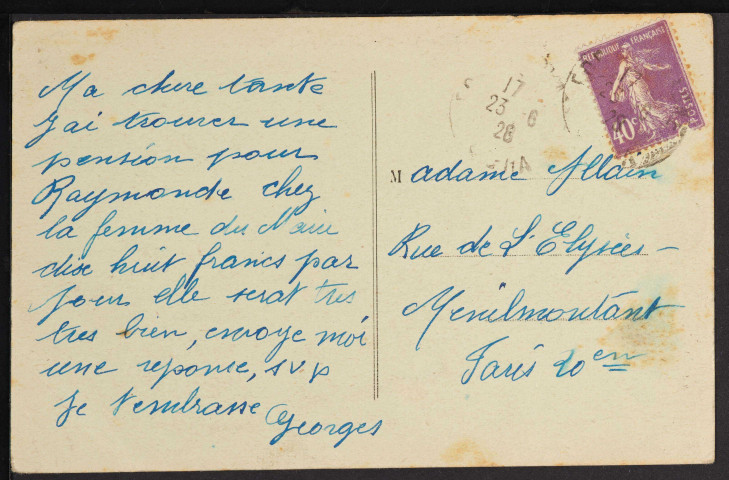 Ma chere tante
J'ai trouver une
pension pour
Raymonde chez
la femme du Maire
dise huit francs par
jour elle serat tres
tres bien, envoye moi
une reponse, svp
Je t'embrasse
Georges
17
23 6
26
REPUBLIQUE FRANÇAISE
POSTES
40c
Madame Allain
Rue de L'Elysées-
Menilmontant
Paris 20 en